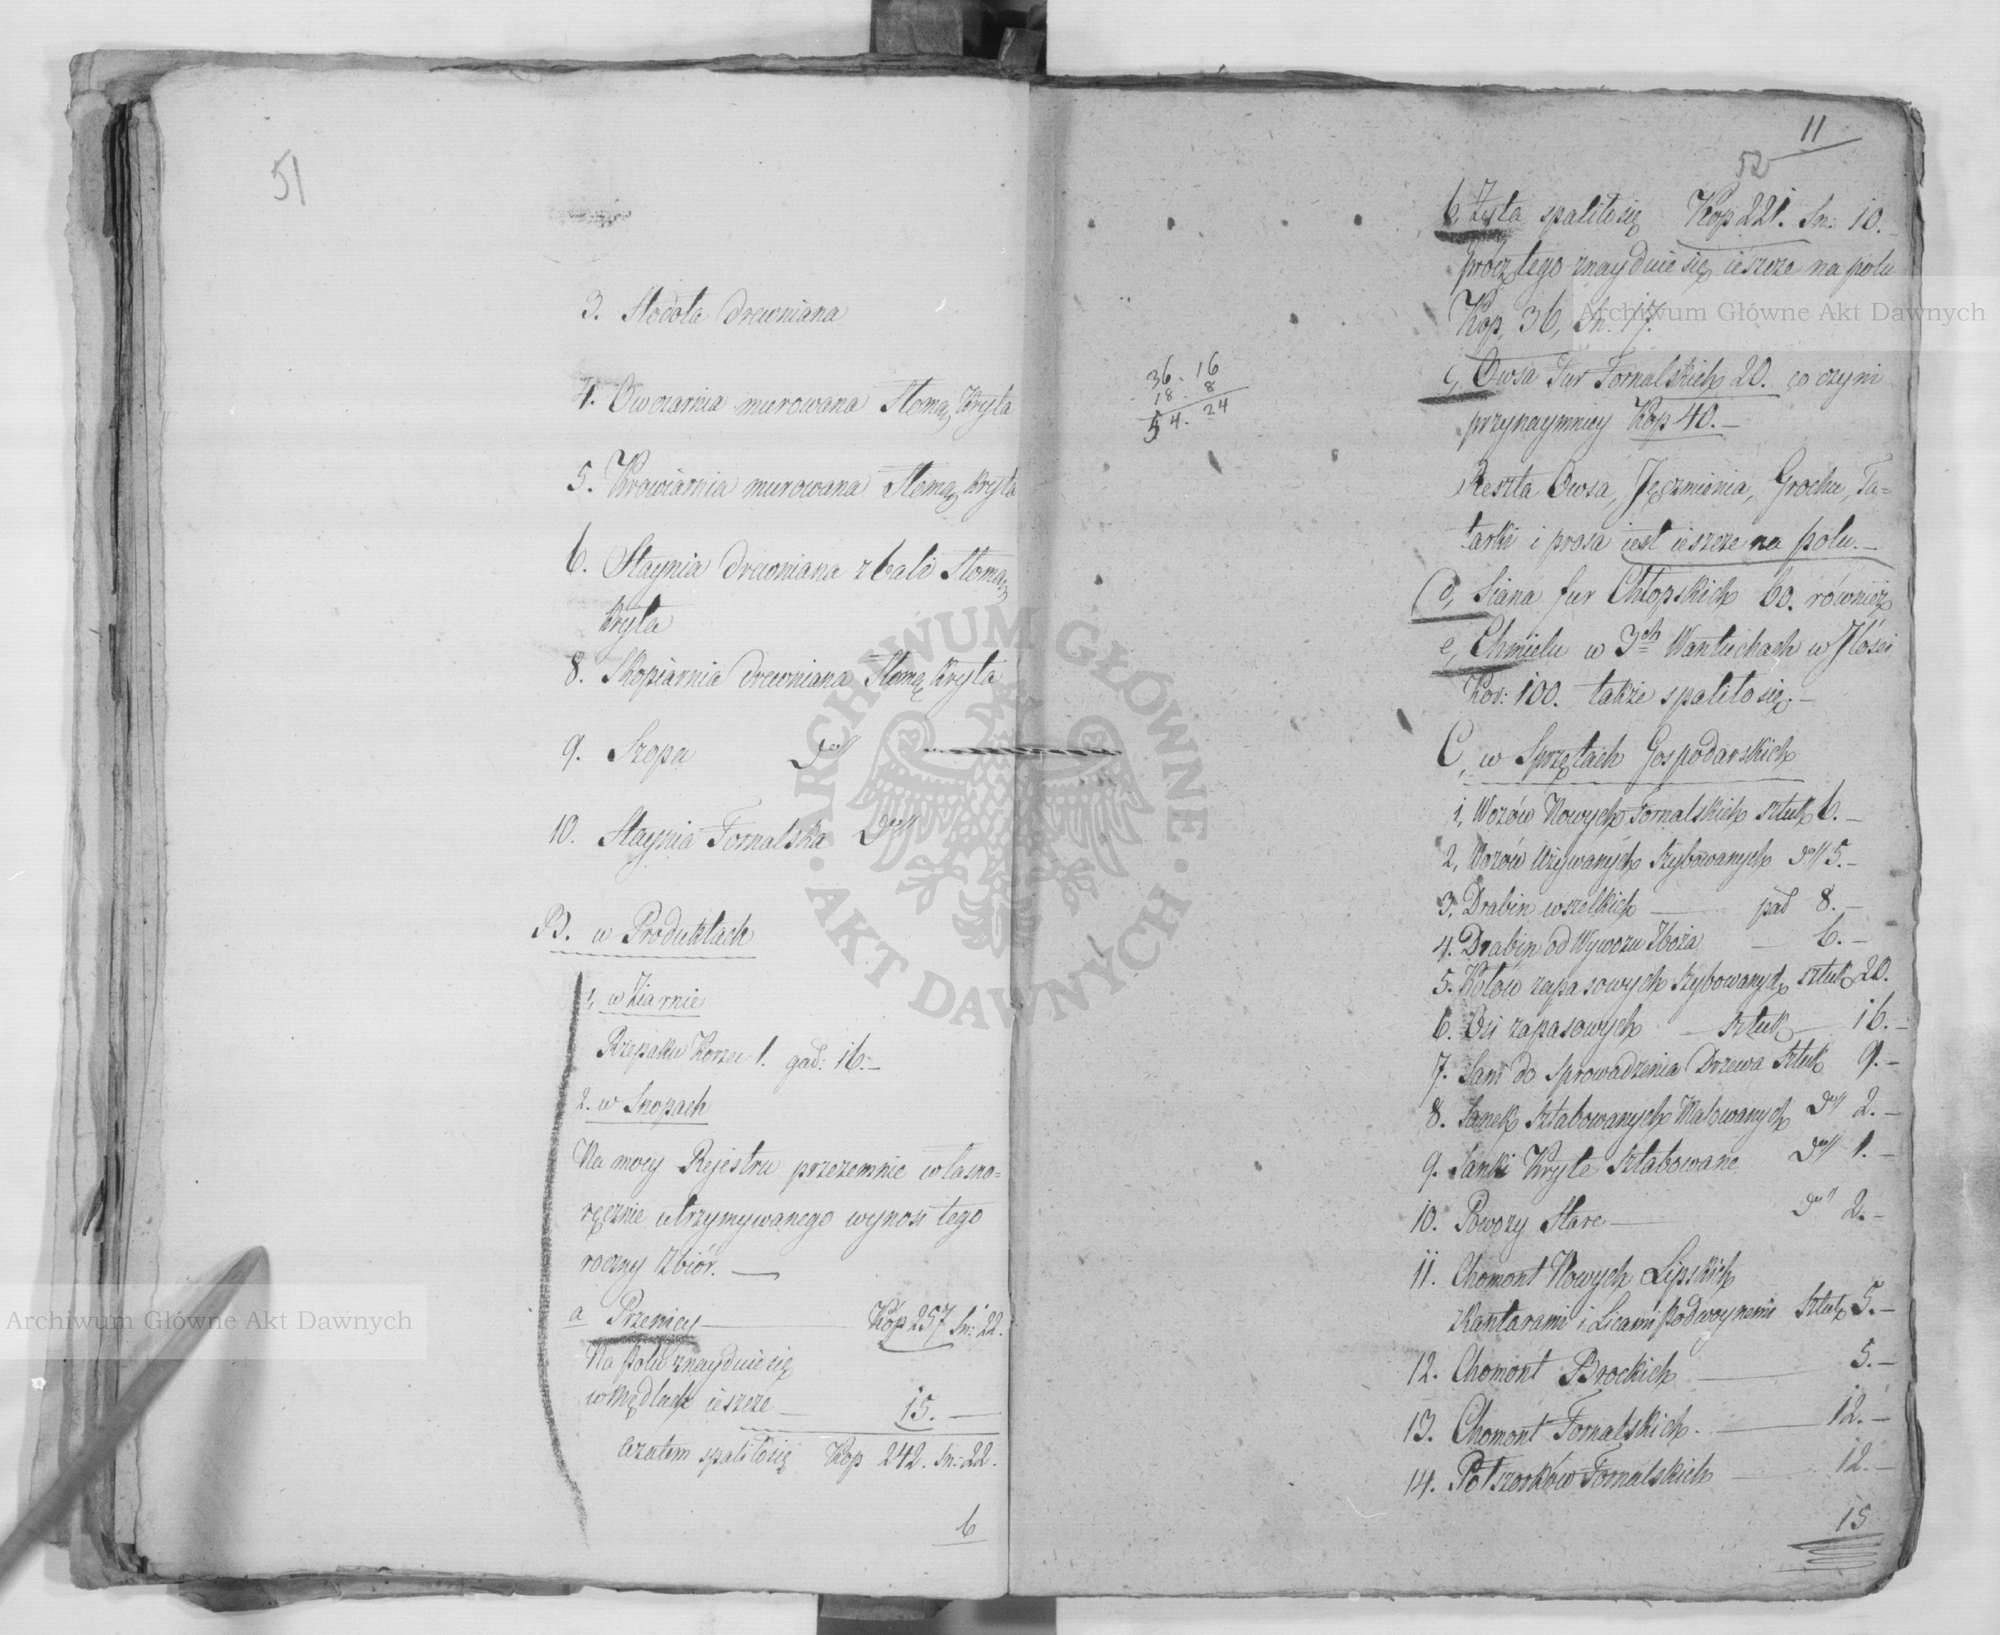 51
3. Stodoła drewniana
4. Owczarnia murowana Słomą kryta
5. Krowiarnia murowana Słomą kryta
6. Staynia drewniana z bali Słomą
kryta
8. Skopiarnia drewniana Słomą kryta
9. Szopa do//
10. Staynia Fornalska do//
B. w Produktach
1, w Ziarnie
Rzepaku Korzec 1. gar: 16.–
2. w Snopach
Na mocy Rejestru przezemnie własno=
ręcznie utrzymywanego wynosi tego
roczny Zbiór. —
a Pszenicy — Kop 257 Sn: 22.
Na polu znayduie się
w Mędlach ieszcze — 15. —
a zatem spaliło się Kop 242. Sn: 22.
6
11
52
b, Żyta spaliło się Kop 221. Sn: 10.–
prócz tego znayduie się ieszcze na polu
Kop, 36, Sn. 17.
36. 16
18. 8
54. 24
c, Owsa Fur Fornalskich 20. co czyni
przynaymniey Kop 40.–
Reszta Owsa, Jęczmienia, Grochu, Ta=
tarki i prosa iest ieszcze na polu.–
d, Siana fur Chłopskich 60. również
e, Chmielu w 3ch Wantuchach w Jlości
Kor: 100. także spaliło się.–
C, w Sprzętach Gospodarskich
1, Wozów Nowych Fornalskich sztuk 6.–
2, Wozów Używanych Szybowanych do// 5.–
3. Drabin wszelkich — par 8.–
4. Drabin od Wywozu Zboża — 6.–
5. Kołów zapasowych Szybowanych sztuk 20.
6. Osi zapasowych — Sztuk — 16.–
7. Sani do Sprowadzenia Drzewa Sztuk 9.–
8. Sanek Sztabowanych Malowanych do// 2.–
9. Sanki Kryte Sztabowane do// 1.–
10. Powozy Stare — do// 2.–
11. Chomont Nowych Lipskich
z Kantarami i Licami podwoynemi Sztuk 5.–
12. Chomont Brockich — 5.–
13. Chomont Fornalskich. — 12.–
14. Pułszorków Fornalskich — 12.–
15
Archiwum Główne Akt Dawnych
Archiwum Główne Akt Dawnych
ARCHIWUM GŁÓWNE
AKT DAWNYCH